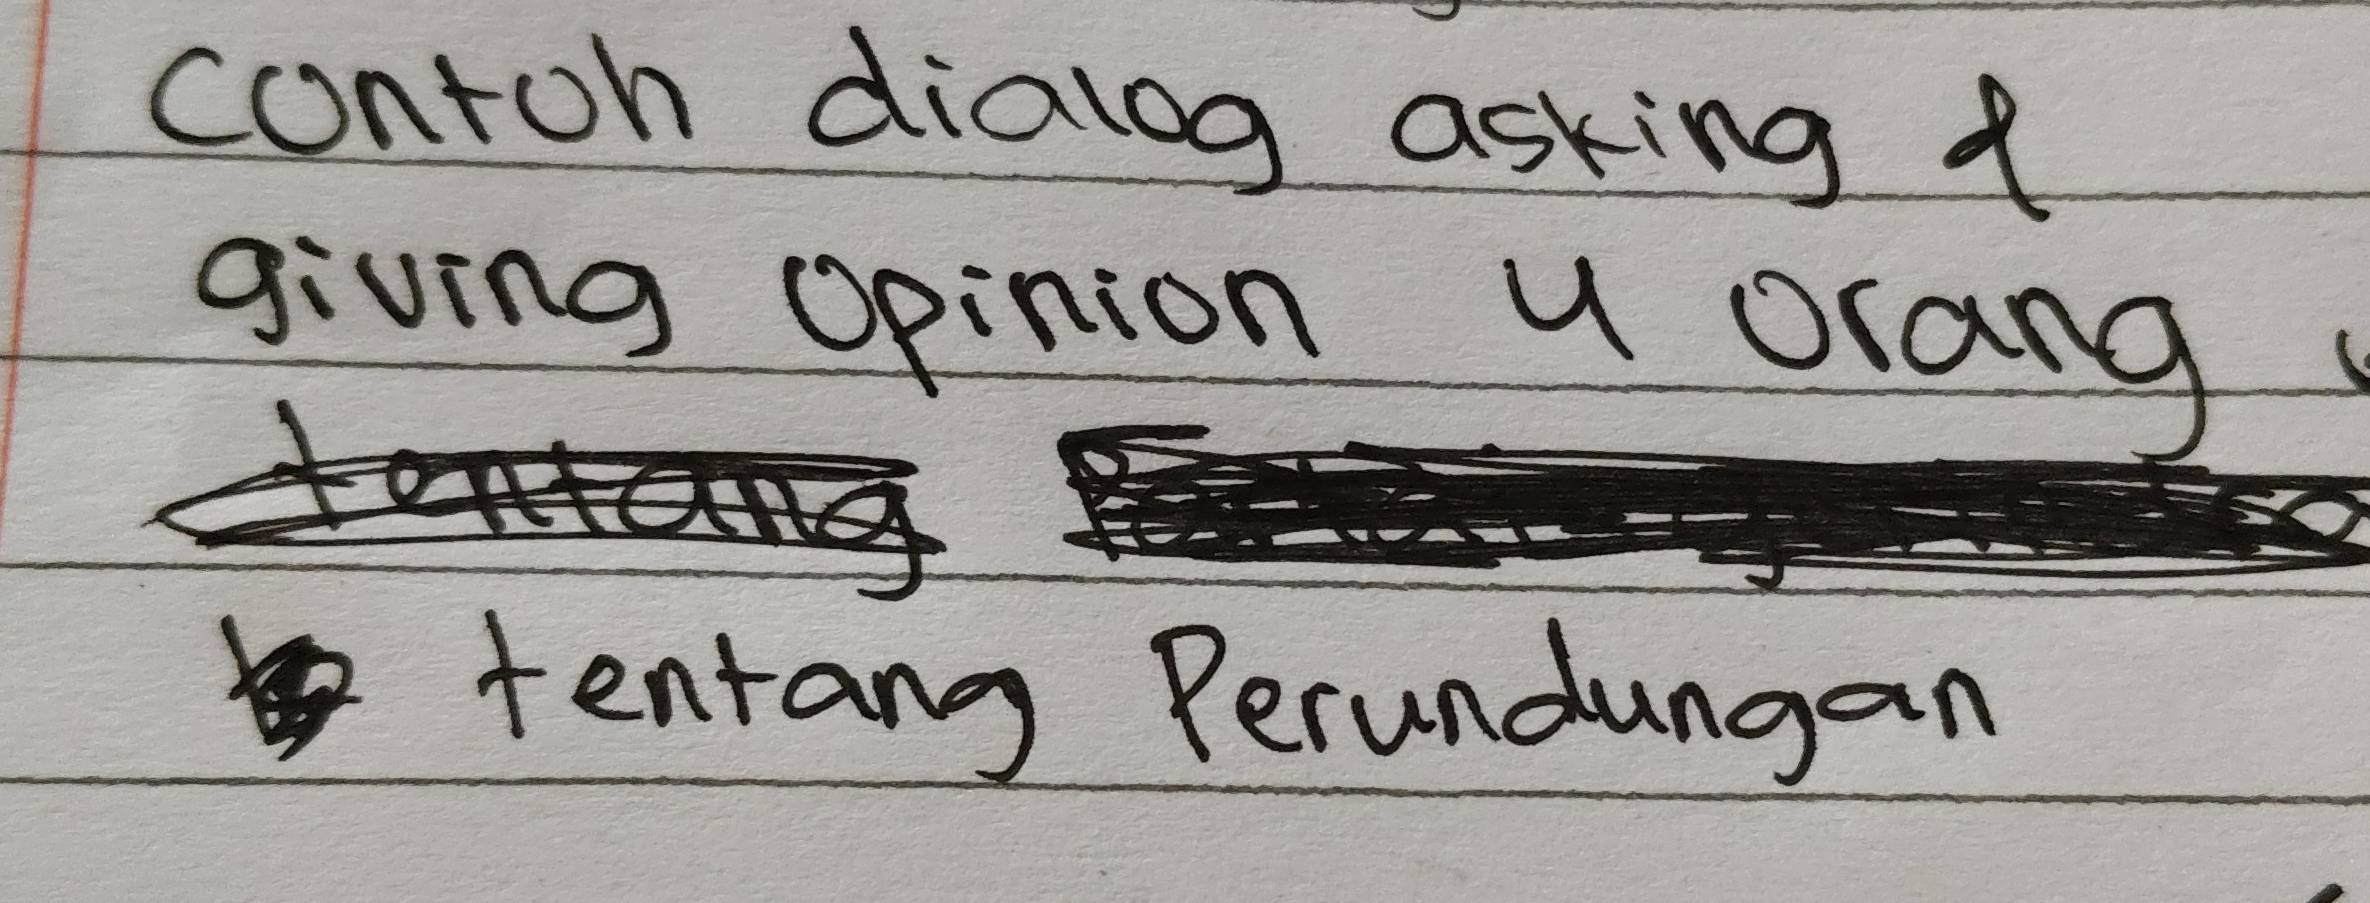 contoh dialog asking &
giving opinion 4 orang
tentang
tentang Perundungan